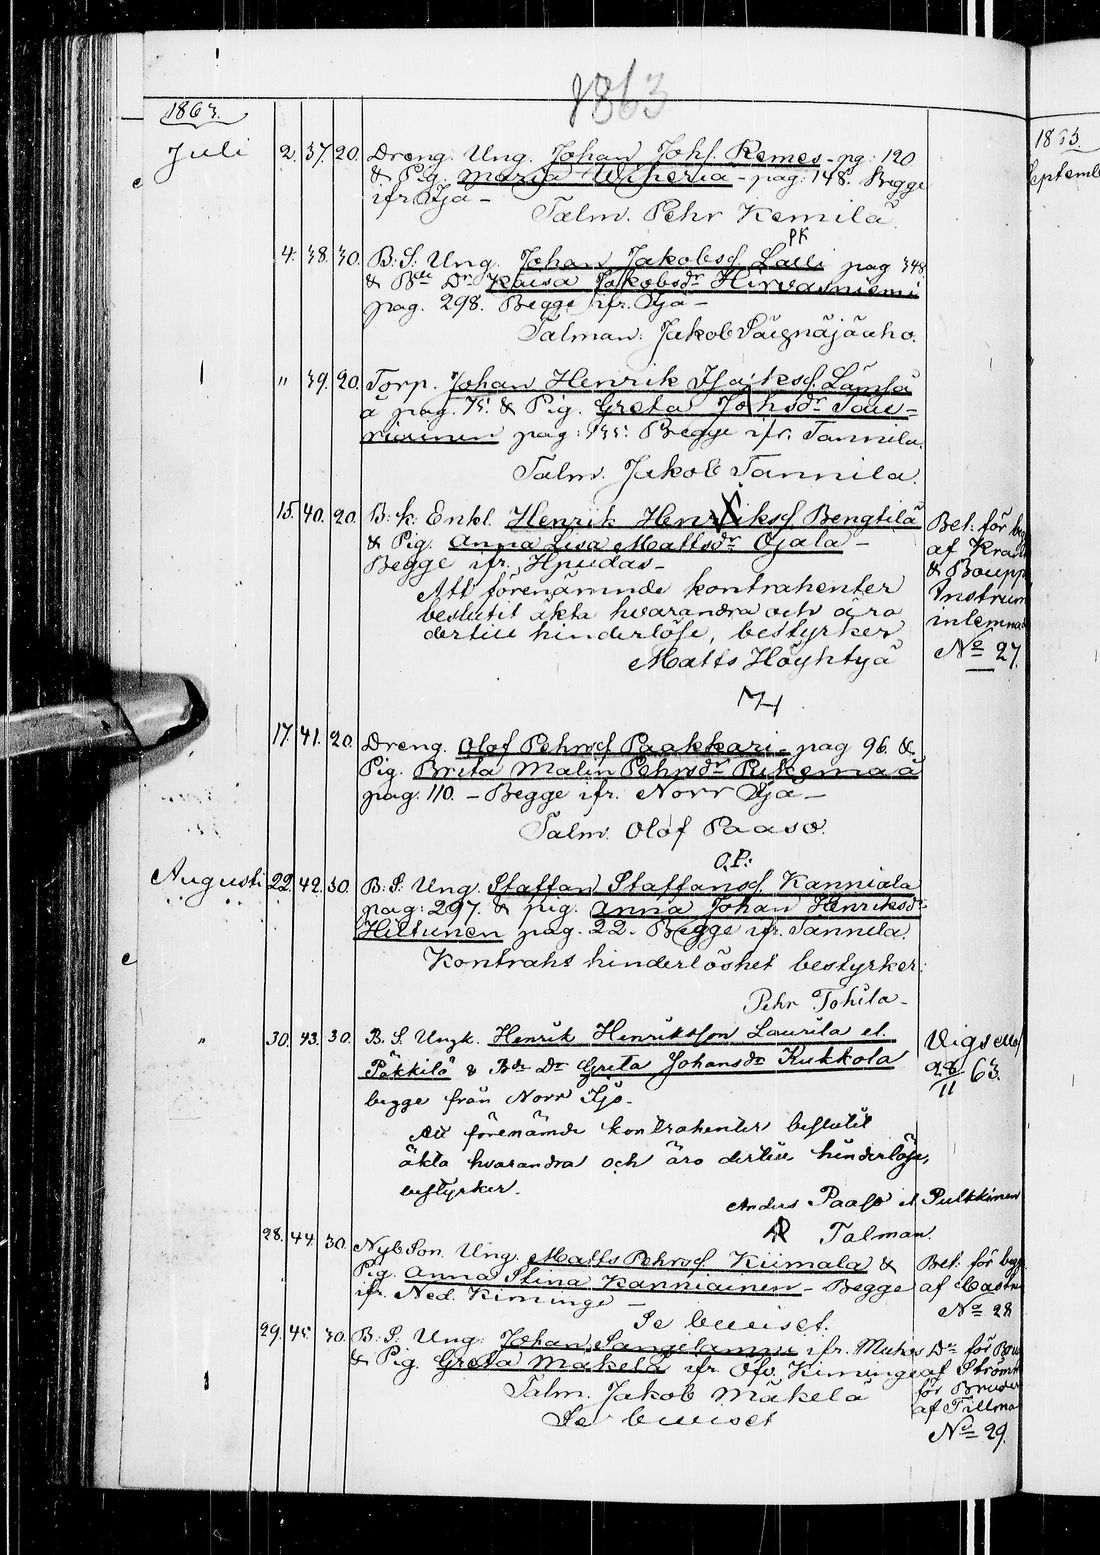 1863
1863.
Juli 2. 37. 20. Dreng. Ung. Johan Johs. Remes - pg: 120
& Pig. Maria - pag: 148. Begge
ifr Ijå -
Talm. Pehr Kemilä
PK
4. 38. 30. B: S: Ung. Johan Jakobss. Lalli pag 348
& Bde Dr Kaisa Jakobsdr Hirvasniemi
pag. 298. Begge ifr. Ijå -
Talman: Jakob
" 39. 20. Torp. Johan Henrik Isakss. Lämsä
å pag. 75. & Pig. Greta Johsdr Tau-
riainen pag: 155: Begge ifr. Tannila.
Talm. Jakob Tannila.
15. 40. 20. B: k: Enkl. Henrik Henrikss. Bengtilä
& Pig. Anna Lisa Mattsdr Ojala -
Begge ifr. Hpudas -
Att förenämnde kontrahenter
beslutit äkta hvarandra och äro
dertill hinderlöse, bestyrker
Matts Höyhtyä
MH
Bet. för
af
& Boupp
Instrum
inlemna
No 27.
17. 41. 20. Dreng. Olof Pehrss. Paakkari - pag 96. &
Pig. Brita Malin Pehrsdr
pag. 110. - Begge ifr. Norr Ijå -
Talm. Olof Paaso.
O.P.
Augusti 22. 42. 30. B: S: Ung. Staffan Staffanss. Kanniala
pag: 297. & pig. Anna Johan Henriksdr
Hiltunen pag. 22. Begge ifr. Tannila.
Kontraht hinderlöshet bestyrker:
Pehr Tohila -
" 30. 43. 30. B. S. Ungk. Henrik Henriksson Laurila el.
Päkkilä & Bde Dr Greta Johansdr Kukkola
begge från Norr Ijo -
Att förenämde kontrahenter beslutit
äkta hvarandra och äro dertill hinderlöse,
bestyrker.
Anders Paaso el Pulkkinen
AP Talman.
Vigs
28/11 63.
28. 44. 30. Nyb Son. Ung. Matts Pehrss. Kiimala &
Pig. Anna Stina Kanniainen - Begge
ifr. Ned. Kiminge -
Se beviset.
Bet. för
af Castr
No 28
29. 45. 30. B: S: Ung: Johan Sangelampi ifr. Muhos
& Pig. Greta Mäkelä ifr. Öfv. Kiminge
Talm. Jakob Mäkelä
Se beviset
Do för
af Ström
för
af Tillma
No 29.
1863.
Septemb